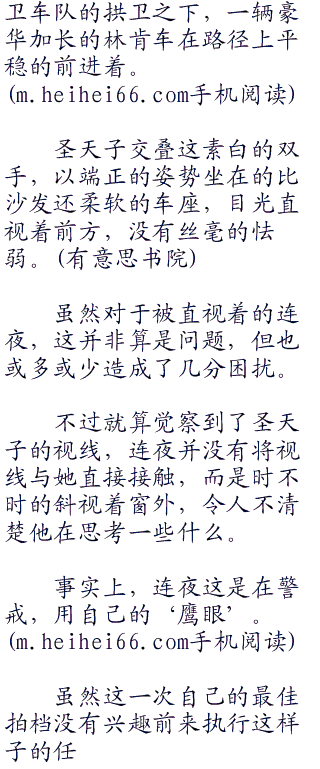 卫车队的拱卫之下，一辆豪
华加长的林肯车在路径上平
稳的前进着。
(m.heihei66.com手机阅读)
圣天子交叠这素白的双
手，以端正的姿势坐在的比
沙发还柔软的车座，目光直
视着前方，没有丝毫的怯
弱。(有意思书院)
虽然对于被直视着的连
夜，这并非算是问题，但也
或多或少造成了几分困扰。
不过就算觉察到了圣天
子的视线，连夜并没有将视
线与她直接接触，而是时不
时的斜视着窗外，令人不清
楚他在思考一些什么。
事实上，连夜这是在警
戒，用自己的‘鹰眼’。
(m.heihei66.com手机阅读)
虽然这一次自己的最佳
拍档没有兴趣前来执行这样
子的任